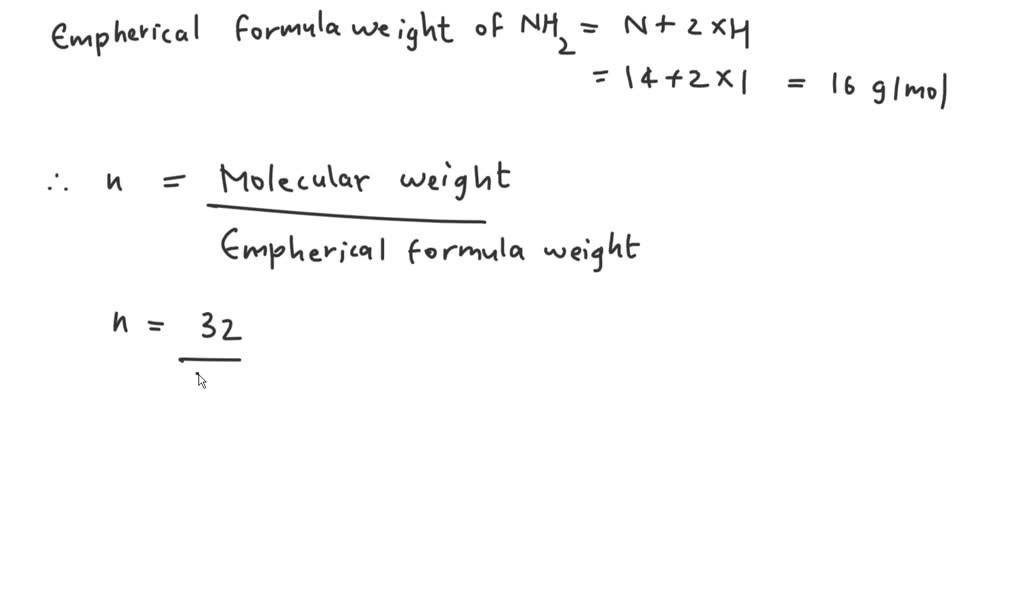 Empherical formula weight of NH2 = N + 2 × H
= 14 + 2 × 1 = 16 g/mol
∴ n = Molecular weight
Empherical formula weight
n = 32